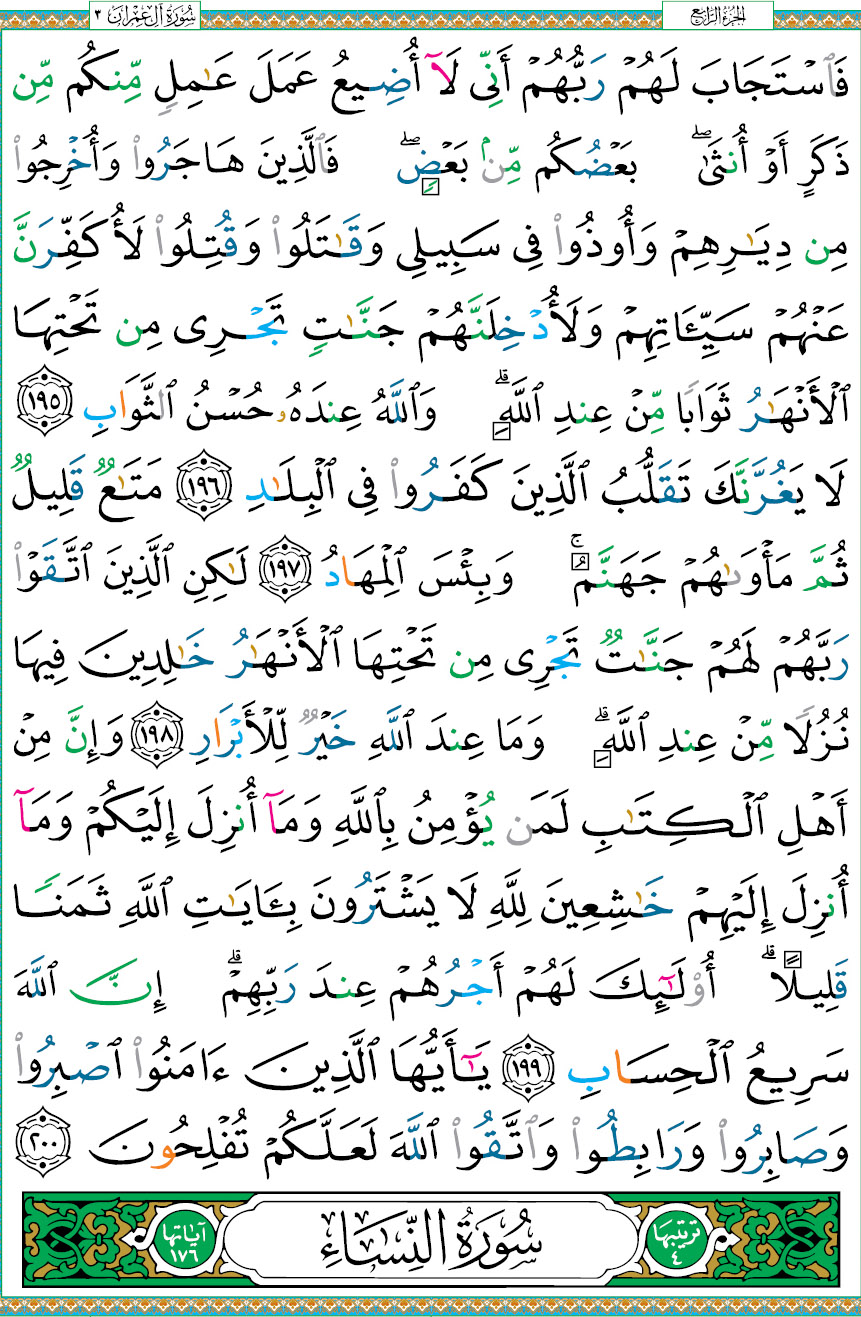 الجزء الرابع
سُورَةُ آلِ عِمْرَانَ ٣
فَٱسْتَجَابَ لَهُمْ رَبُّهُمْ أَنِّى لَآ أُضِيعُ عَمَلَ عَـٰمِلٍ مِّنكُم مِّن
ذَكَرٍ أَوْ أُنثَىٰ ۖ بَعْضُكُم مِّنۢ بَعْضٍ ۖ فَٱلَّذِينَ هَاجَرُوا۟ وَأُخْرِجُوا۟
مِن دِيَـٰرِهِمْ وَأُوذُوا۟ فِى سَبِيلِى وَقَـٰتَلُوا۟ وَقُتِلُوا۟ لَأُكَفِّرَنَّ
عَنْهُمْ سَيِّـَٔاتِهِمْ وَلَأُدْخِلَنَّهُمْ جَنَّـٰتٍ تَجْرِى مِن تَحْتِهَا
ٱلْأَنْهَـٰرُ ثَوَابًا مِّنْ عِندِ ٱللَّهِ ۗ وَٱللَّهُ عِندَهُۥ حُسْنُ ٱلثَّوَابِ ١٩٥
لَا يَغُرَّنَّكَ تَقَلُّبُ ٱلَّذِينَ كَفَرُوا۟ فِى ٱلْبِلَـٰدِ ١٩٦ مَتَـٰعٌ قَلِيلٌ
ثُمَّ مَأْوَىٰهُمْ جَهَنَّمُ ۚ وَبِئْسَ ٱلْمِهَادُ ١٩٧ لَـٰكِنِ ٱلَّذِينَ ٱتَّقَوْا۟
رَبَّهُمْ لَهُمْ جَنَّـٰتٌ تَجْرِى مِن تَحْتِهَا ٱلْأَنْهَـٰرُ خَـٰلِدِينَ فِيهَا
نُزُلًا مِّنْ عِندِ ٱللَّهِ ۗ وَمَا عِندَ ٱللَّهِ خَيْرٌ لِّلْأَبْرَارِ ١٩٨ وَإِنَّ مِنْ
أَهْلِ ٱلْكِتَـٰبِ لَمَن يُؤْمِنُ بِٱللَّهِ وَمَآ أُنزِلَ إِلَيْكُمْ وَمَآ
أُنزِلَ إِلَيْهِمْ خَـٰشِعِينَ لِلَّهِ لَا يَشْتَرُونَ بِـَٔايَـٰتِ ٱللَّهِ ثَمَنًا
قَلِيلًا ۗ أُو۟لَـٰٓئِكَ لَهُمْ أَجْرُهُمْ عِندَ رَبِّهِمْ ۗ إِنَّ ٱللَّهَ
سَرِيعُ ٱلْحِسَابِ ١٩٩ يَـٰٓأَيُّهَا ٱلَّذِينَ ءَامَنُوا۟ ٱصْبِرُوا۟
وَصَابِرُوا۟ وَرَابِطُوا۟ وَٱتَّقُوا۟ ٱللَّهَ لَعَلَّكُمْ تُفْلِحُونَ ٢٠٠
ترتيبها ٤
سُورَةُ النِّسَاءِ
آياتها ١٧٦